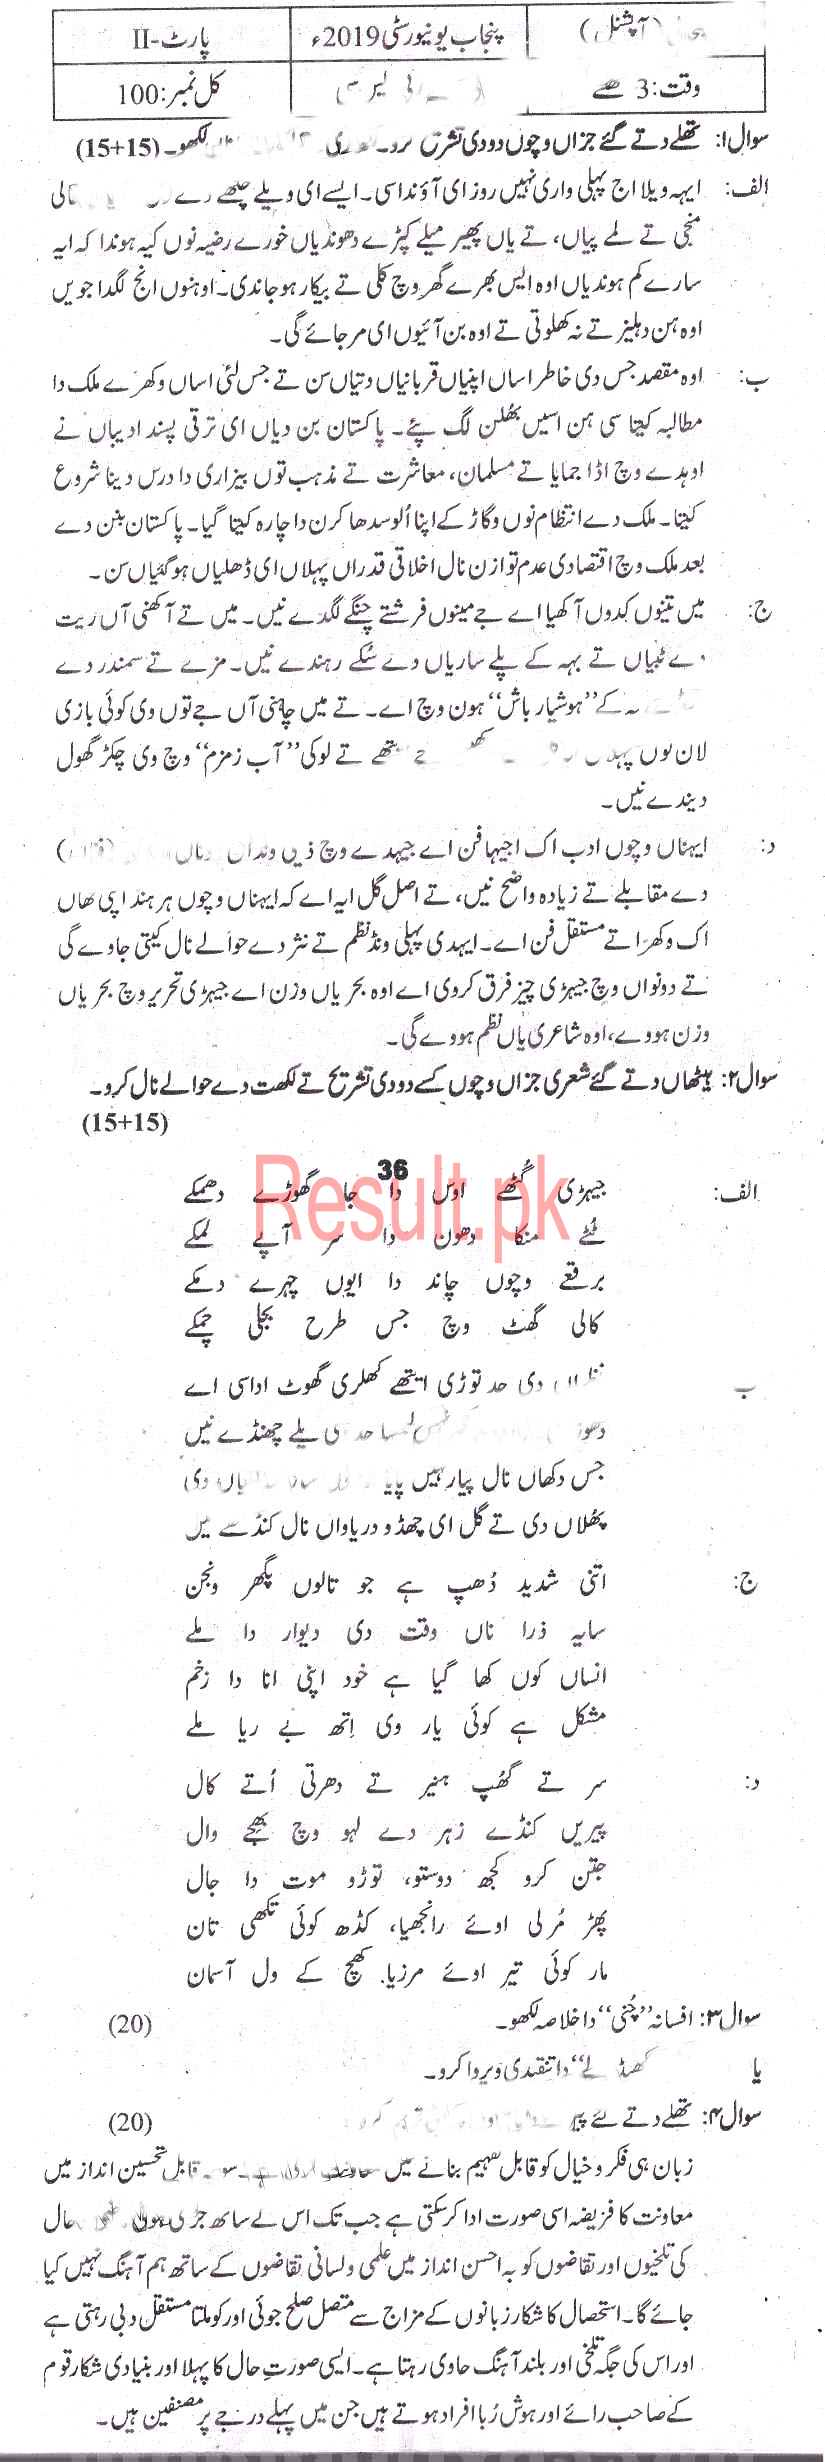 (آپشنل) پنجاب یونیورسٹی 2019ء پارٹ-II
وقت: 3 گھنٹے کل نمبر: 100
سوال ۱: تھلے دتے گئے جزاں وچوں دو دی تشریح کرو۔ لکھو۔ (15+15)
الف: ایہہ ویلا اج پہلی واری نہیں روز ای آؤندا سی۔ ایسے ای ویلے
منجی تے لمے پیاں، تے یاں پھیر میلے کپڑے دھوندیاں خورے رضیہ نوں کیہ ہوندا کہ ایہ
سارے کم ہوندیاں اوہ ایس بھرے گھر وچ کلی تے بیکار ہو جاندی۔ اوہنوں انج لگدا جویں
اوہ ہن دہلیز تے نہ کھلوتی تے اوہ بن آئیوں ای مر جائے گی۔
ب: اوہ مقصد جس دی خاطر اساں اپنیاں قربانیاں دتیاں سن تے جس لئی اساں وکھرے ملک دا
مطالبہ کیتا سی ہن اسیں بھلن لگ پئے۔ پاکستان بن دیاں ای ترقی پسند ادیباں نے
اوہدے وچ اڈا جمایا تے مسلمان، معاشرت تے مذہب توں بیزاری دا درس دینا شروع
کیتا۔ ملک دے انتظام نوں وگاڑ کے اپنا اُلو سدھا کرن دا چارہ کیتا گیا۔ پاکستان بنن دے
بعد ملک وچ اقتصادی عدم توازن نال اخلاقی قدراں پہلاں ای ڈھلیاں ہو گئیاں سن۔
ج: میں تینوں کدوں آکھیا اے جے مینوں فرشتے چنگے لگدے نیں۔ میں تے آکھنی آں ریت
دے ٹبیاں تے بہہ کے پلے ساریاں دے سُکے رہندے نیں۔ مزے تے سمندر دے
کے "ہوشیار باش" ہون وچ اے۔ تے میں چاہنی آں جے توں وی کوئی بازی
لان توں پہلاں تے لوکی "آب زمزم" وچ وی چکڑ گھول
دیندے نیں۔
د: ایہناں وچوں ادب اک اجیہا فن اے جیہدے وچ ذیلی ونڈاں
دے مقابلے تے زیادہ واضح نیں، تے اصل گل ایہ اے کہ ایہناں وچوں ہر ہند اپنی تھاں
اک وکھرا تے مستقل فن اے۔ ایہدی پہلی ونڈ نظم تے نثر دے حوالے نال کیتی جاوے گی
تے دونواں وچ جیہڑی چیز فرق کردی اے اوہ بحر یاں وزن اے جیہڑی تحریر وچ بحر یاں
وزن ہووے، اوہ شاعری یاں نظم ہووے گی۔
سوال ۲: ہیٹھاں دتے گئے شعری جزاں وچوں کسے دو دی تشریح تے لکھت دے حوالے نال کرو۔
(15+15)
36
Result.pk
الف: جیہڑی گُٹھے اوس دا جا گھوڑے دھمکے
ٹُٹے منکا دھون دا سر آپے لمکے
برقعے وچوں چاند دا ایوں چہرے دمکے
کالی گھٹ وچ جس طرح بجلی چمکے
ب دی حد توڑی ایتھے کھلری گھوٹ اداسی اے
پلے چھنڈے نیں
جس دکھاں نال پیار نہیں پایا
پھلاں دی تے گل ای چھڈو دریاواں نال کنڈے نیں
ج: اتنی شدید دُھپ ہے جو تالوں پگھر ونجن
سایہ ذرا ناں وقت دی دیوار دا ملے
انساں کوں کھا گیا ہے خود اپنی انا دا زخم
مشکل ہے کوئی یار وی اِتھ بے ریا ملے
د: سر تے گھپ ہنیر تے دھرتی اُتے کال
پیریں کنڈے زہر دے لہو وچ بھجے وال
جتن کرو کجھ دوستو، توڑو موت دا جال
پھڑ مُرلی اوئے رانجھیا، کڈھ کوئی تکھی تان
مار کوئی تیر اوئے مرزیا۔ کھچ کے ول آسمان
سوال ۳: افسانہ "چُنی" دا خلاصہ لکھو۔ (20)
یا دا تنقیدی ویروا کرو۔
سوال ۴: تھلے دتے گئے (20)
زبان ہی فکر و خیال کو قابل تفہیم بنانے میں قابل تحسین انداز میں
معاونت کا فریضہ اسی صورت ادا کر سکتی ہے جب تک اس کے ساتھ جڑی ہوئی حال
کی تلخیوں اور تقاضوں کو بہ احسن انداز میں علمی و لسانی تقاضوں کے ساتھ ہم آہنگ نہیں کیا
جائے گا۔ استحصال کا شکار زبانوں کے مزاج سے متصل صلح جوئی اور کوملتا مستقل دبی رہتی ہے
اور اس کی جگہ تلخی اور بلند آہنگ حاوی رہتا ہے۔ ایسی صورت حال کا پہلا اور بنیادی شکار قوم
کے صاحب رائے اور ہوش رُبا افراد ہوتے ہیں جن میں پہلے درجے پر مصنفین ہیں۔